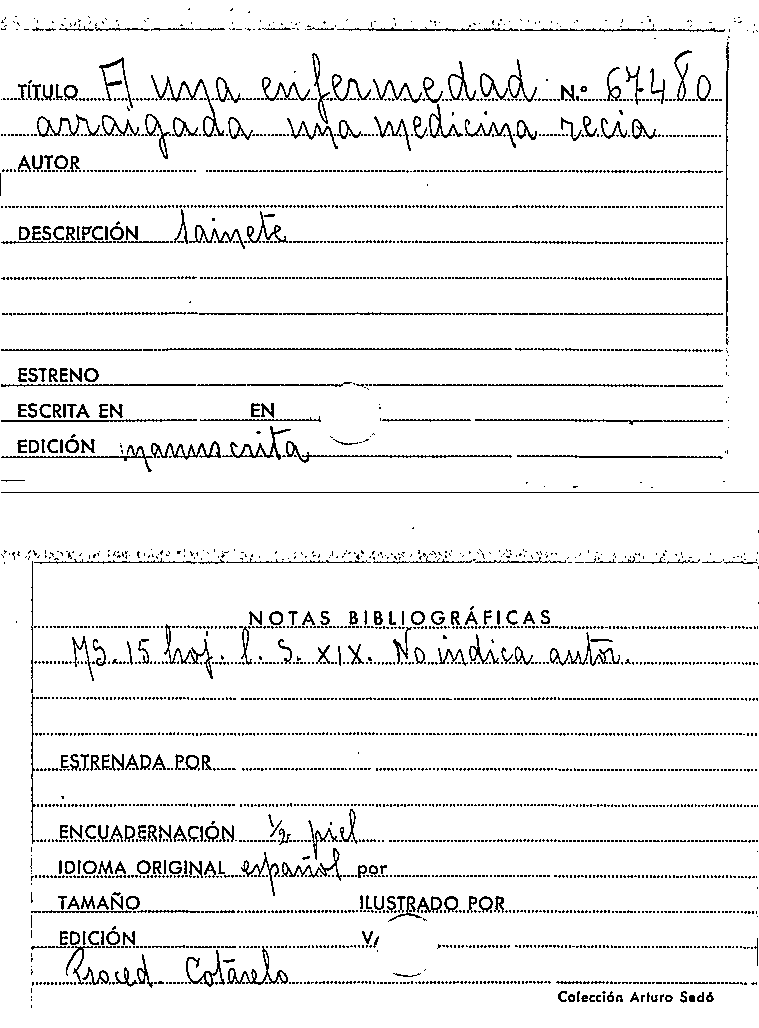 TÍTULO A una enfermedad N.º 67480
arraigada una medicina recia
AUTOR
DESCRIPCIÓN Sainete
ESTRENO
ESCRITA EN EN
EDICIÓN manuscrita
NOTAS BIBLIOGRÁFICAS
MS. 15 hoj. l. S. XIX. No indica autor.
ESTRENADA POR
ENCUADERNACIÓN 1/2 piel
IDIOMA ORIGINAL español por
TAMAÑO ILUSTRADO POR
EDICIÓN V/
Proced. Cotarelo
Colección Arturo Sedó